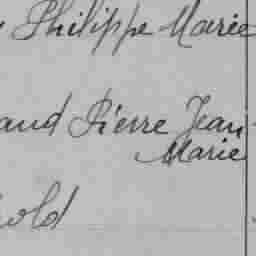 Philippe Marie
and Pierre Jean
Marie
old